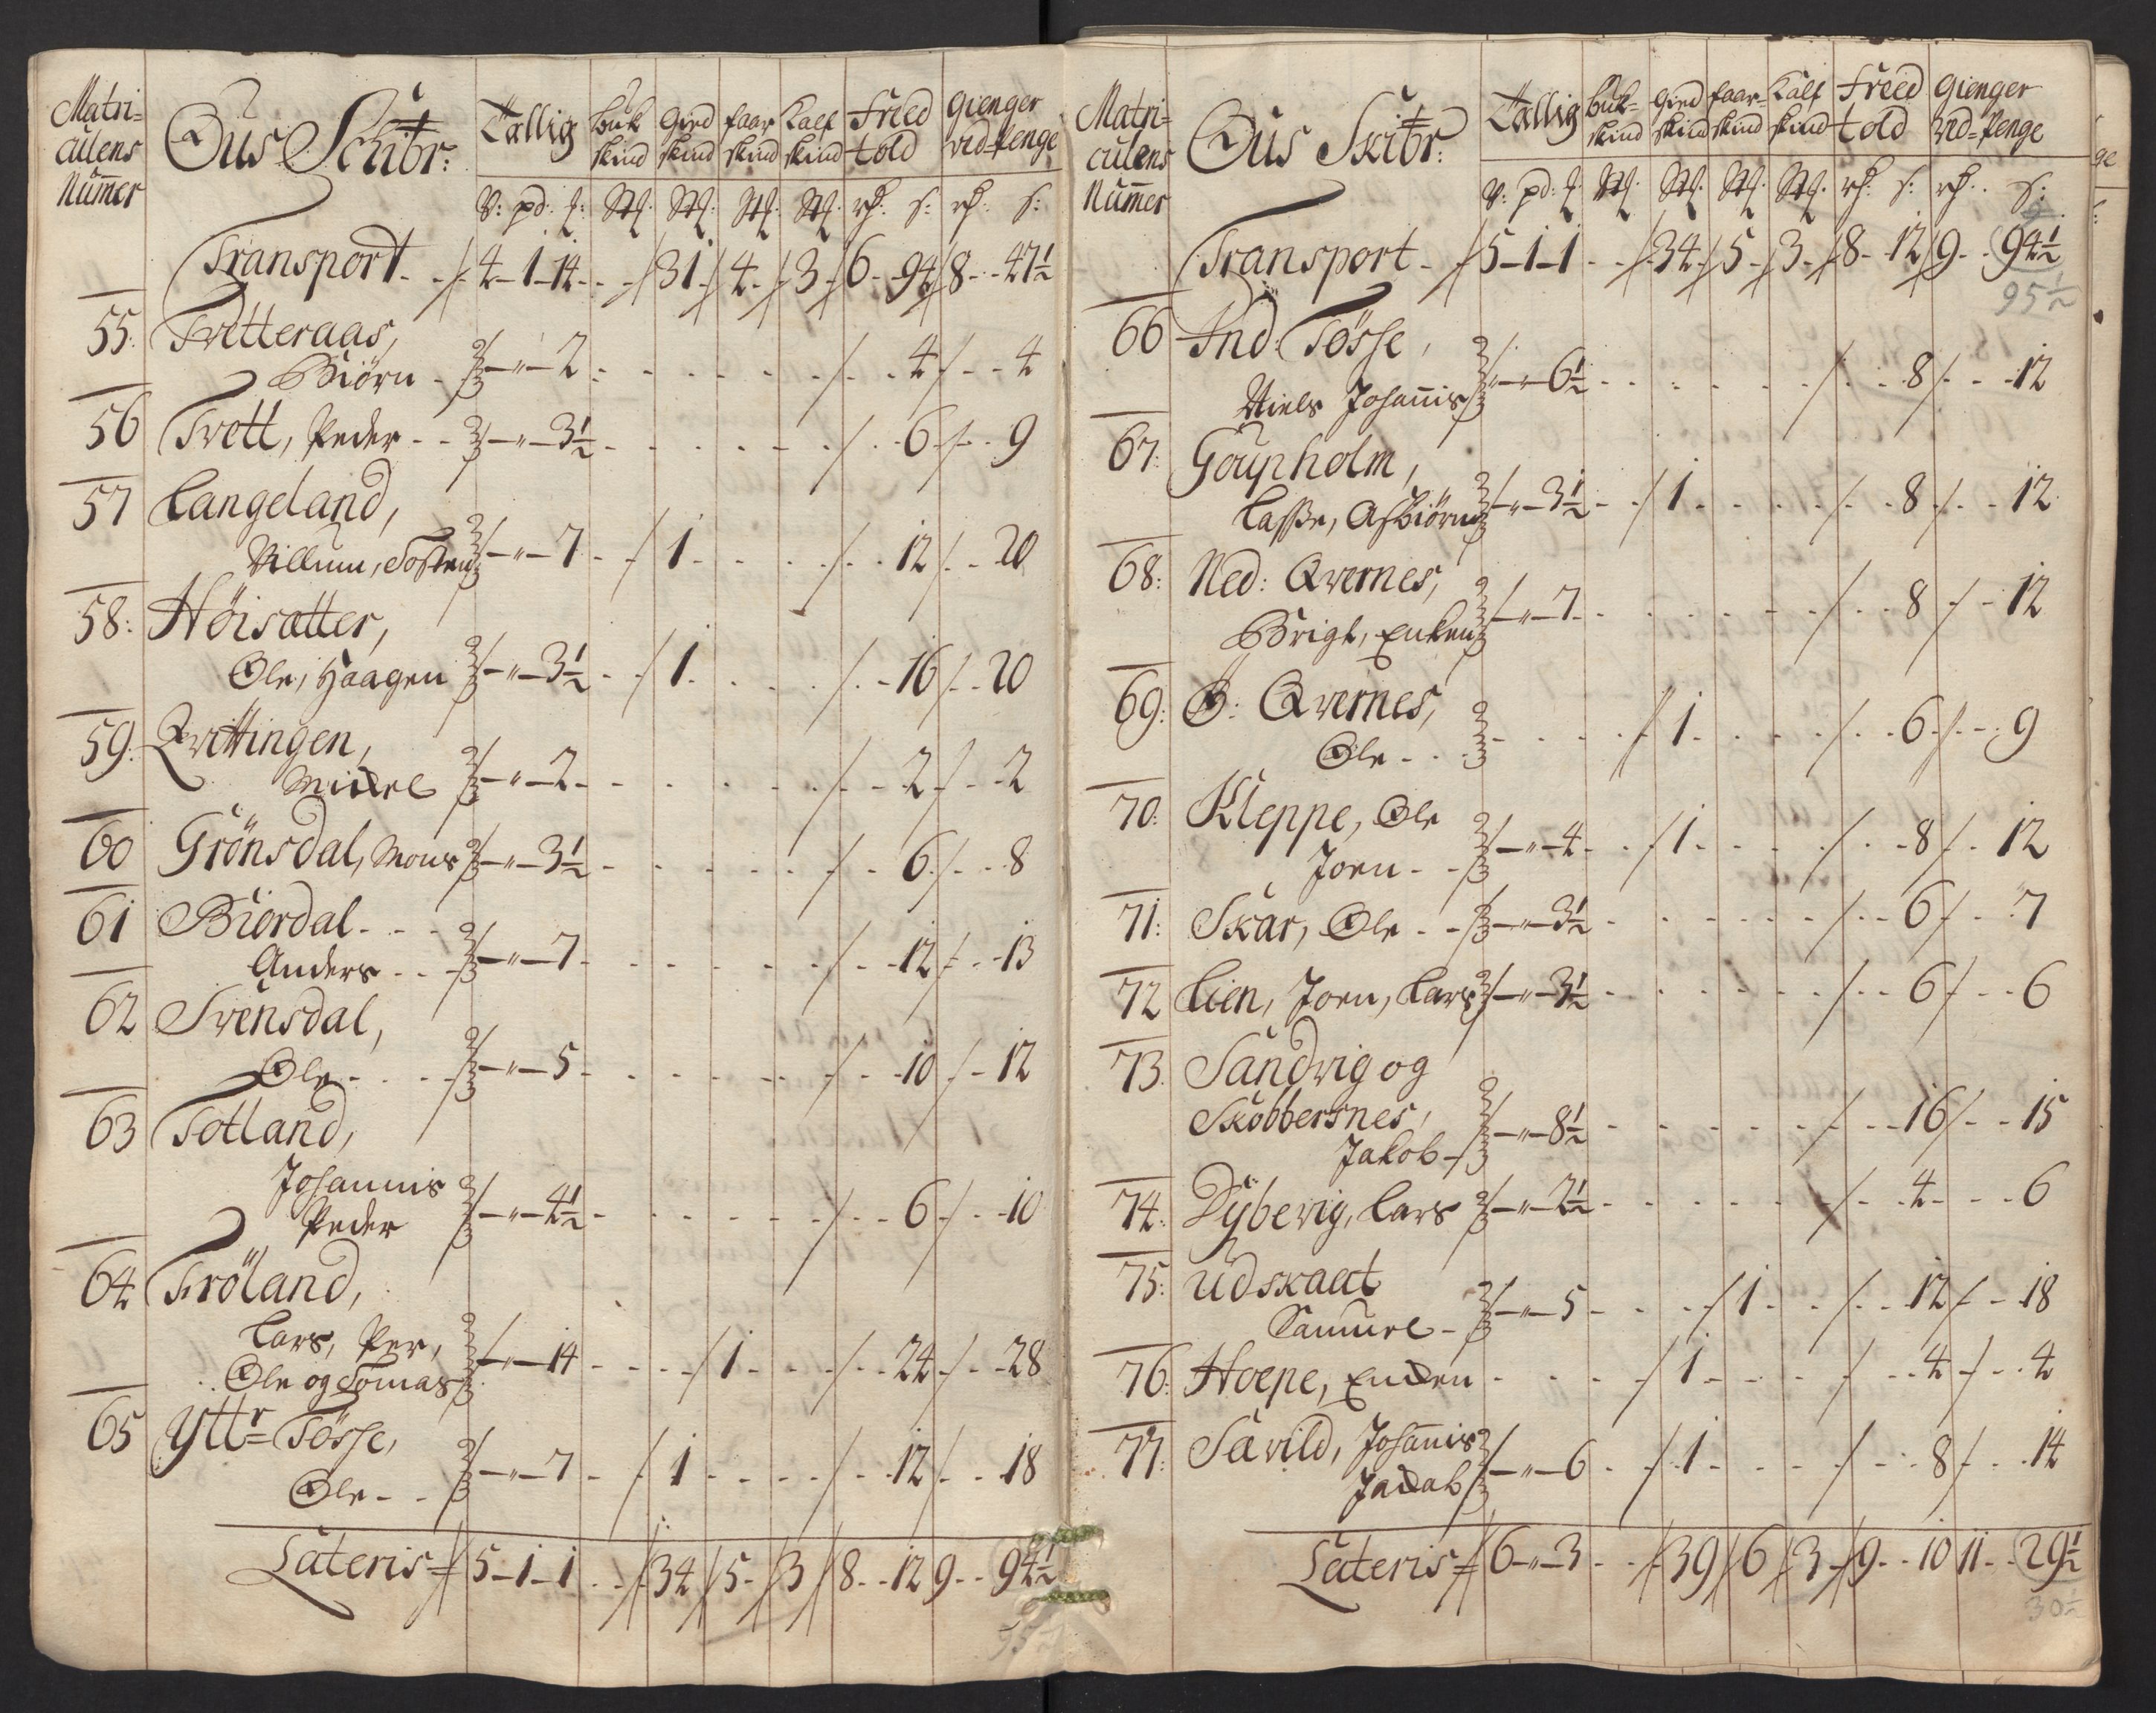 Matri-
culens
Nummer
Ous Schibr:
Tallig
buk
skind
Gied
skind
faar
skind
Kalf
skind
Freed
told
Gienger
vid-Penge
V: pd: Stk: Stk: Stk: Stk: s: s:
Transport 4-1-14 31 4 3 6 94 8 47½
55: Tvetteraas,
Biørn - " - 2 4 4
56 Tvett, Peder - " - 3½ 6 9
57 Langeland,
Villum, Tosten - " - 7 1 12 20
58: Höisætter,
Ole, Haagen - " - 3½ 1 16 20
59: Qvittingen,
Mickel - " - 2 2 2
60 Grönsdal, Mons - " - 3½ 6 8
61 Biordal
Anders - " - 7 12 13
62 Svensdal,
Ole - " - 5 10 12
63 Totland,
Johannis
Peder - " - 4½ 6 10
64 Fröland,
Lars, Per,
Ole og Tomas - " - 14 1 24 28
65 Yttr= Tösse,
Ole - " - 7 1 12 18
Lateris 5-1-1 34 5 3 8 12 9 94½
95½
Matri-
culens
Nummer
Ous Skibr:
Tallig
buk-
skind
Gied
skind
faar-
skind
Kalf
skind
Freed
told
Gienger
vid-Penge
V: pd: Stk: Stk: Stk: Stk: s: s:
Transport 5-1-1 34 5 3 8 12 9 94½
95½
66 Ind: Tösse,
Niels Johannis - " - 6½ 8 12
67: Goupholm,
Lasse, Asbiørn - " - 3½ 1 8 12
68: Ned: Qvernes,
Brigt, Enken - " - 7 8 12
69: Ö: Qvernes,
Ole 1 6 9
70: Kleppe, Ole
Joen - " - 4 1 8 12
71: Skar, Ole - " - 3½ 6 7
72 Lien, Joen, Lars - " - 3½ 6 6
73. Sandvig og
Skobbersnes,
Jakob - " - 8½ 16 15
74: Dybevig, Lars - " - 2½ 4 6
75: Udskaat
Samuel - " - 5 1 12 18
76: Hoepe, Encken 1 4 4
77: Sævild, Johannis
Jackob - " - 6 1 8 14
Lateris 6-"-3 39 6 3 9 10 11 29½
30½